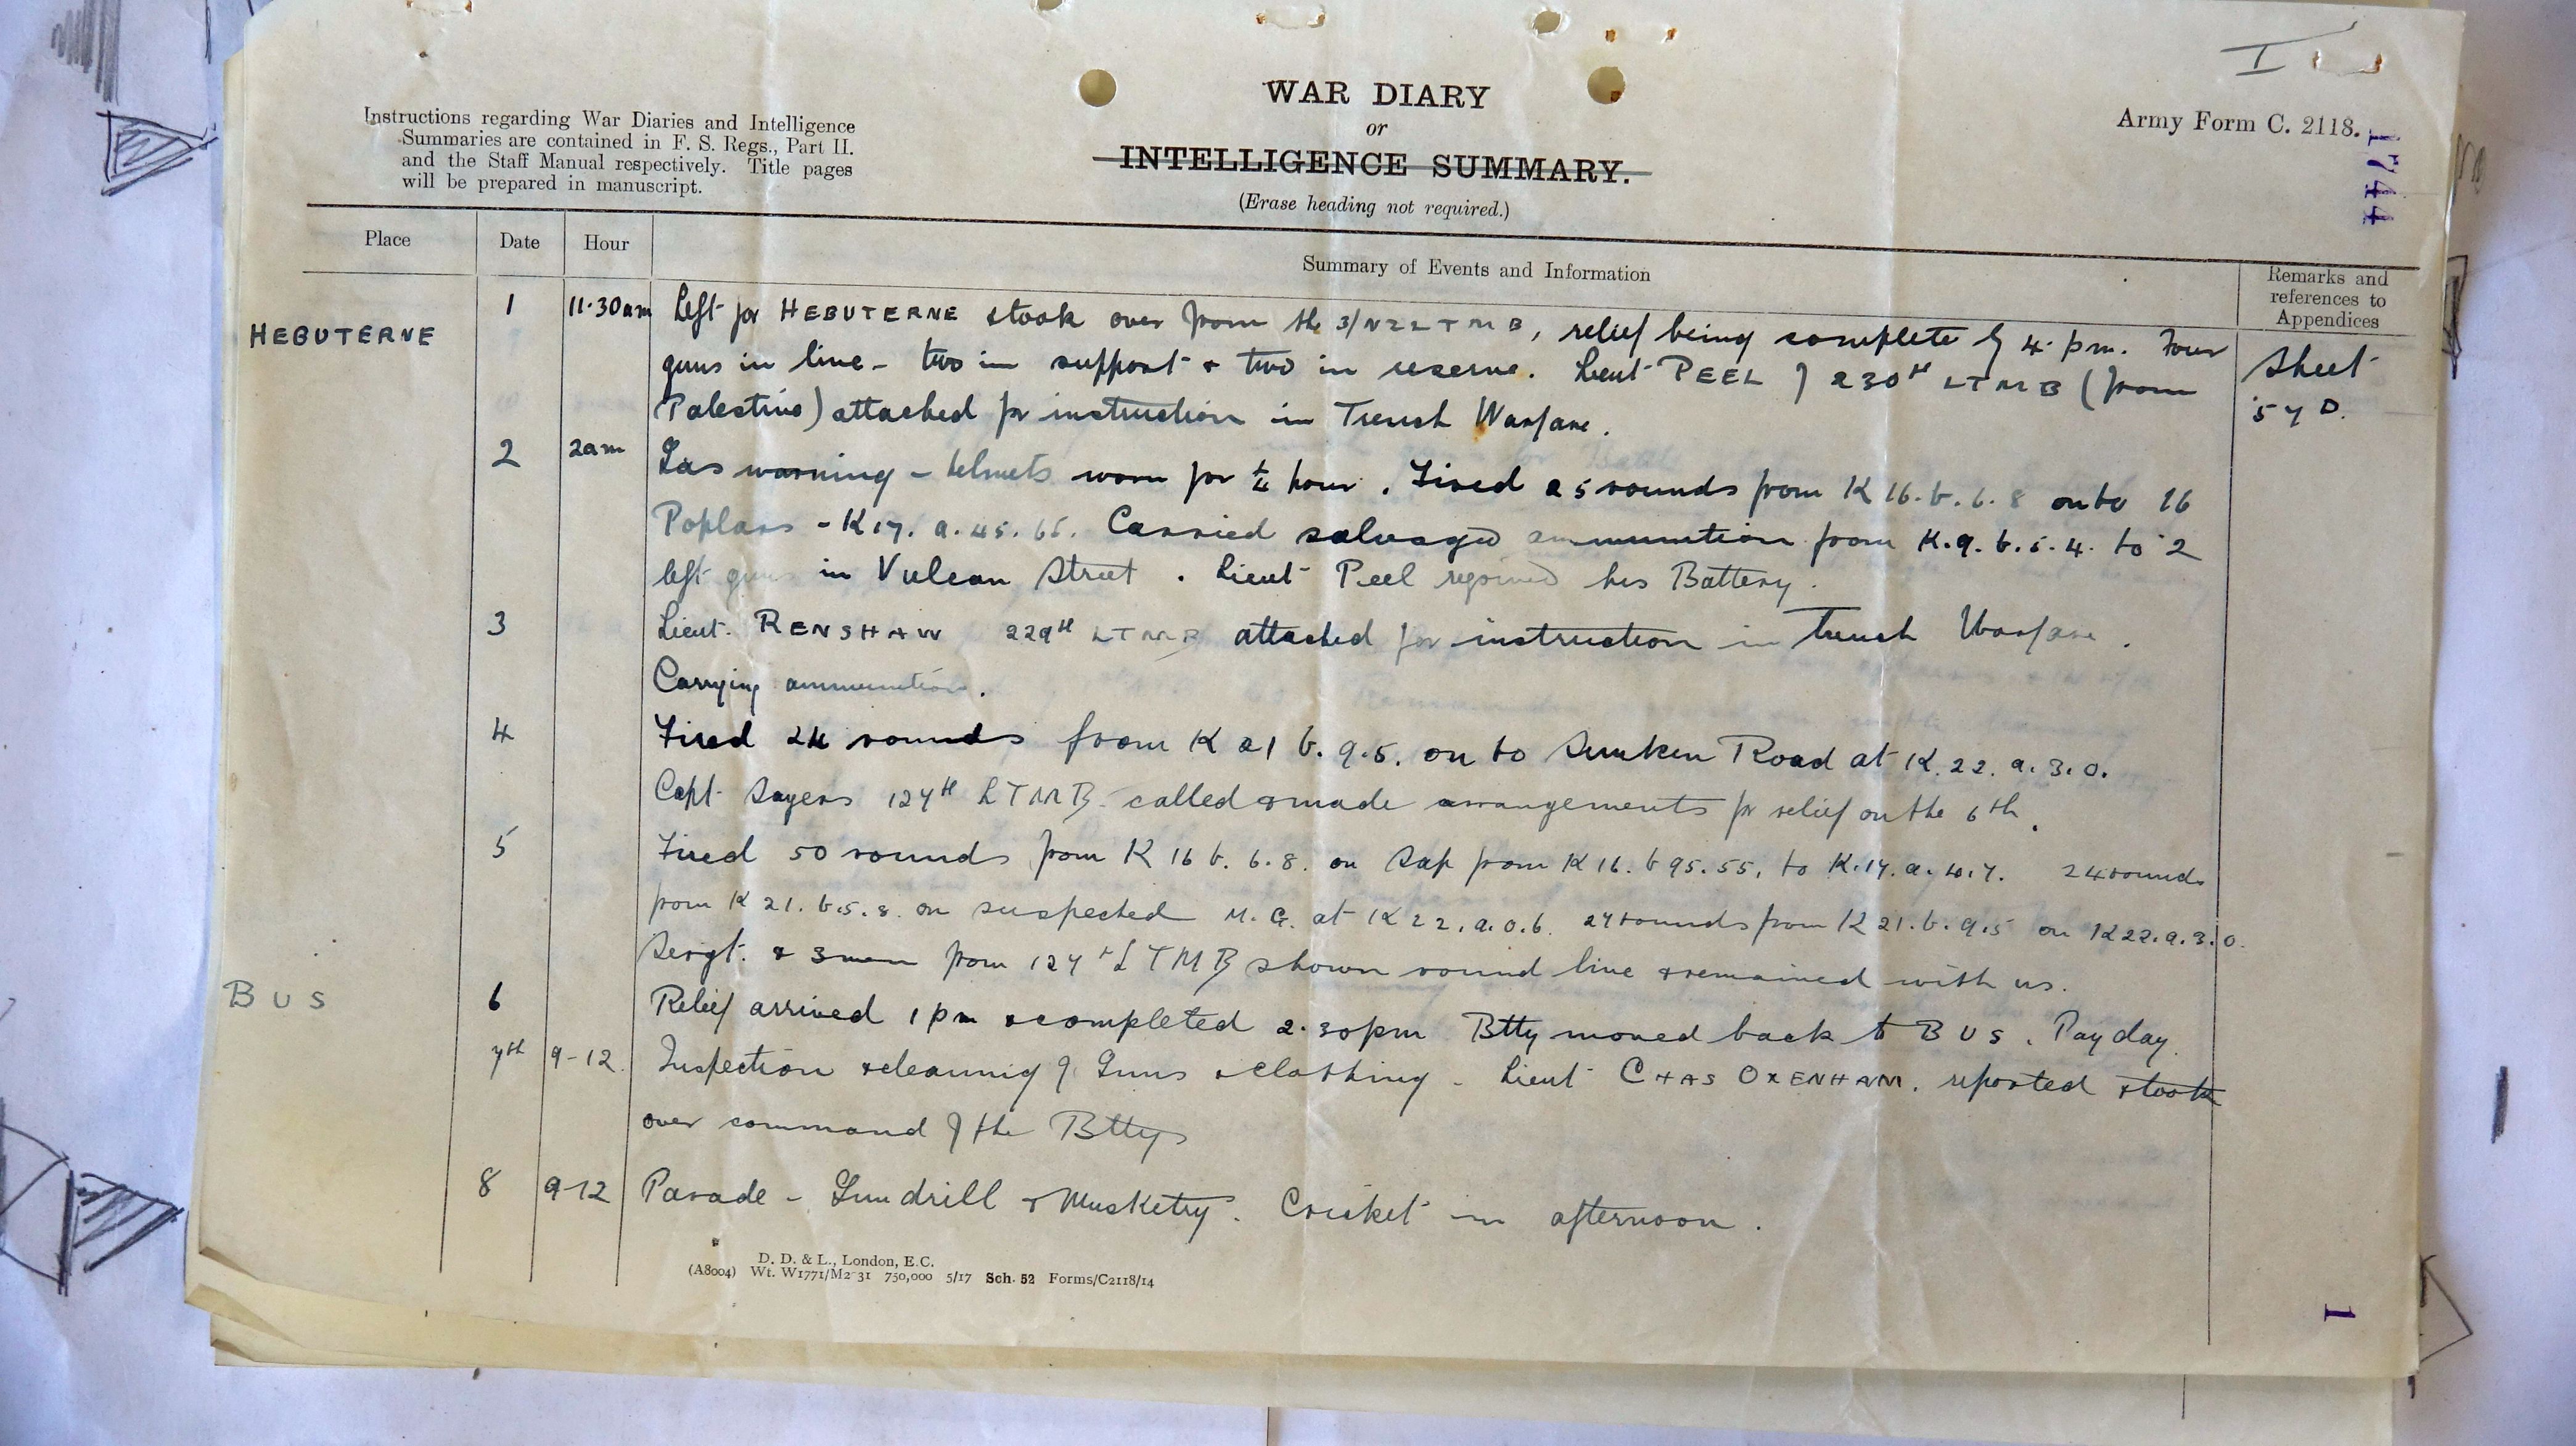 I
WAR DIARY
or
INTELLIGENCE SUMMARY.
(Erase heading not required.)
Instructions regarding War Diaries and Intelligence
Summaries are contained in F. S. Regs., Part II.
and the Staff Manual respectively. Title pages
will be prepared in manuscript.
Army Form C. 2118.
1744
Place Date Hour Summary of Events and Information Remarks and
references to
Appendices
HEBUTERNE 1 11.30am Left for HEBUTERNE & took over from the 3/NZ LTMB, relief being complete by 4 pm. Four
guns in line - two in support & two in reserve. Lieut PEEL of 230th LTMB (from
Palestine) attached for instruction in Trench Warfare.
Sheet
57D.
2 2am Gas warning - helmets worn for 1/4 hour. Fired 25 rounds from K16.b.6.8 onto 16
Poplars - K17.a.45.65. Carried salvaged ammunition from K.9.b.5.4. to 2
left guns in Vulcan Street. Lieut Peel rejoined his Battery.
3 Lieut. RENSHAW 229th LTMB attached for instruction in Trench Warfare.
Carrying ammunition.
4 Fired 24 rounds from K21 b.9.5. on to Sunken Road at K.22.a.3.0.
Capt Sayers 127th LTMB called & made arrangements for relief on the 6th.
5 Fired 50 rounds from K16 b.6.8. on Sap from K16.b 95.55. to K.17.a.4.7. 24 rounds
from K21.b.5.8. on suspected M.G. at K22.a.0.6. 24 rounds from K21.b.9.5 on K22.a.3.0.
Sergt. & 3 men from 127th LTMB shown round line & remained with us.
BUS 6 Relief arrived 1pm & completed 2.30pm Btty moved back to BUS. Pay day.
7th 9-12. Inspection & cleaning of Guns & Clothing - Lieut CHAS OXENHAM. reported & took
over command of the Btty
8 9-12 Parade - Gun drill & Musketry. Cricket in afternoon.
D. D. & L., London, E.C.
(A8004) Wt. W1771/M2 31 750,000 5/17 Sch. 52 Forms/C2118/14
1